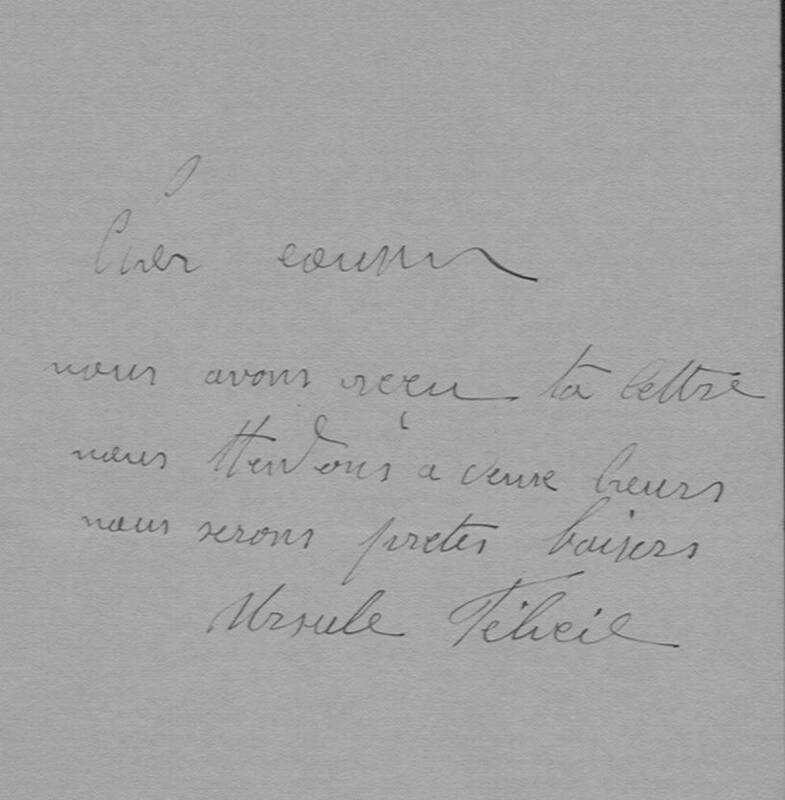 Cher cousin
nous avons reçu ta lettre
nous ttendons a deux heurs
nous serons pretes baisers
Ursule Félicie